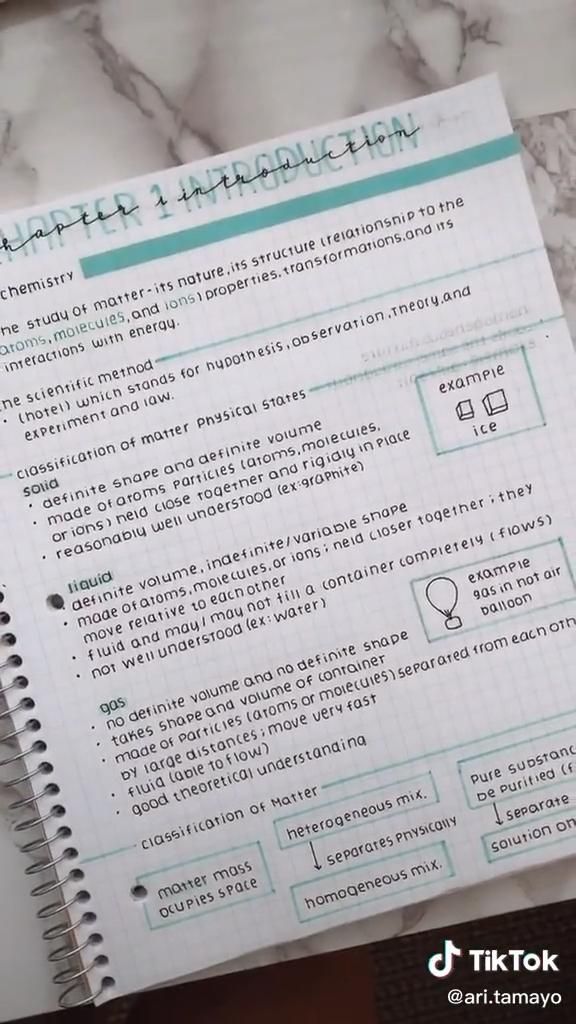 CHAPTER 1 INTRODUCTION
chapter 1 introduction
chemistry
the study of matter-its nature, its structure (relationship to the
atoms, molecules, and ions) properties, transformations, and its
interactions with energy.
the scientific method
• (hotel) which stands for hypothesis, observation, theory, and
experiment and law.
classification of matter Physical States
example
ice
solid
• definite shape and definite volume
• made of atoms particles (atoms, molecules,
or ions) held close together and rigidly in place
• reasonably well understood (ex:graphite)
liquid
• definite volume, indefinite/variable shape
• made of atoms, molecules, or ions; held closer together; they
move relative to each other
• fluid and may/may not fill a container completely (flows)
• not well understood (ex: water)
example
gas in hot air
balloon
gas
• no definite volume and no definite shape
• takes shape and volume of container
• made of particles (atoms or molecules) separated from each oth
by large distances; move very fast
• fluid (able to flow)
• good theoretical understanding
classification of Matter
matter mass
ocupies space
heterogeneous mix.
↓ separates physically
homogeneous mix.
Pure substanc
be purified (f
↓ separate
solution on
TikTok
@ari.tamayo